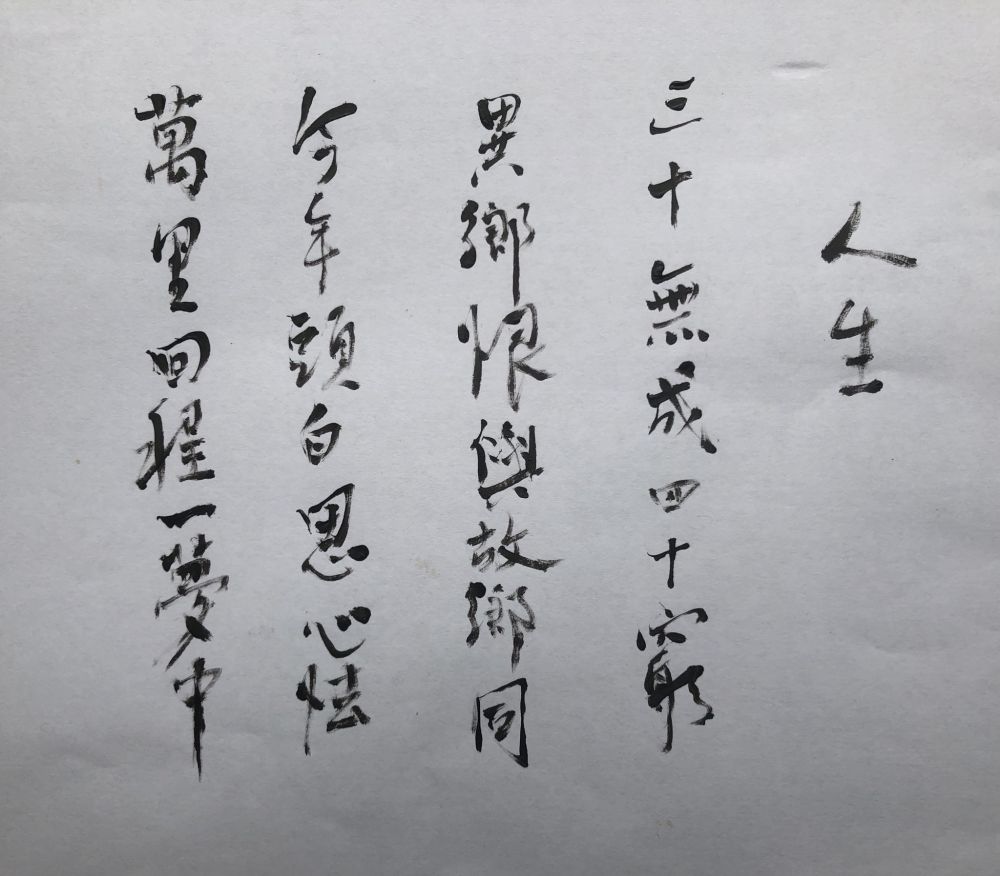 人生
三十無成四十窮
異鄉恨與故鄉同
今年頭白思心怯
萬里回程一夢中